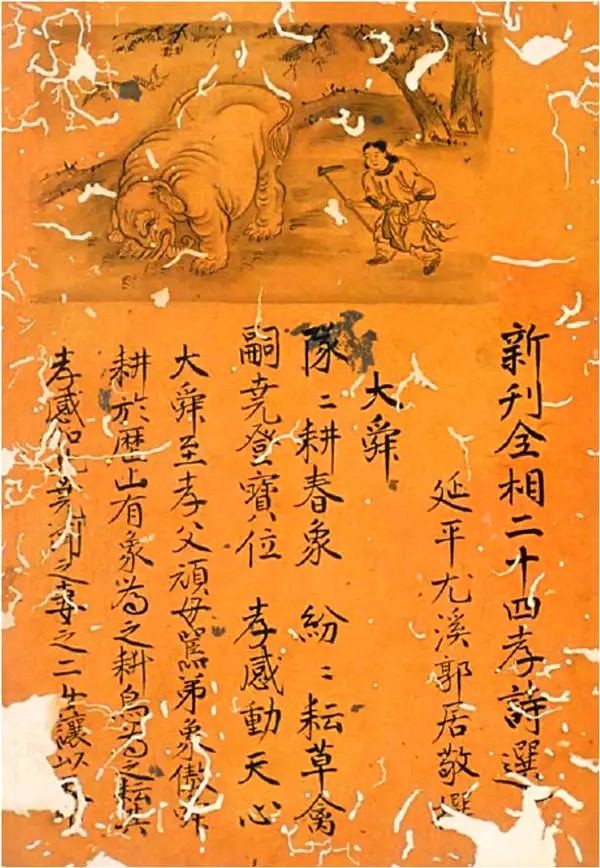 新刊全相二十四孝詩選
延平尤溪郭居敬撰
大舜
隊〻耕春象 紛〻耘草禽
嗣堯登寶位 孝感動天心
大舜至孝父頑母嚚弟象傲舜
耕於歷山有象為之耕鳥為之耘其
孝感如此堯之妻之二女讓以